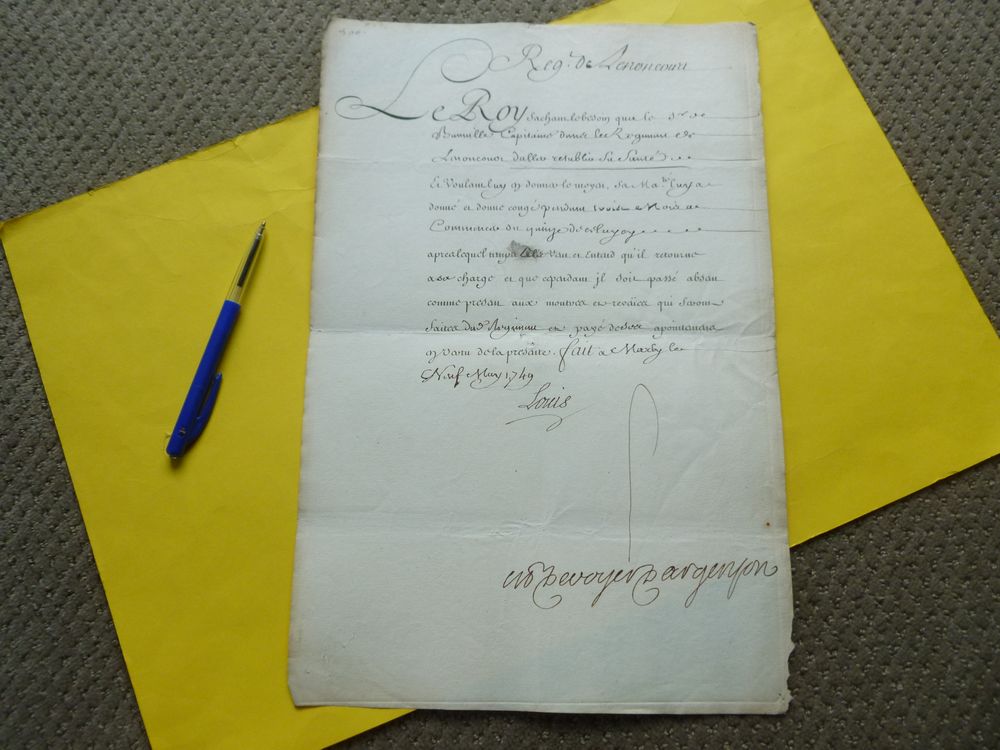 Reg.t de Lenoncourt
Le Roy Sachant le besoin que le S.r de
Capitaine dans le Regiment de
Lenoncour d'aller retablir Sa Santé
Et Voulant luy en donner le moyen, Sa Ma.té luy a
donné et donne congé pendant trois Mois a
Commencer du quinze de
apres lequel temps Elle Veut et Entend qu'il retourne
a sa charge et que cependant jl soit passé absent
comme present aux montres et reveües qui Seront
faites dud. Regiment et payé de ses apointemens
en vertu de la presente. fait a Marly le
Neuf May 1749
Louis
de voyer d'argenson